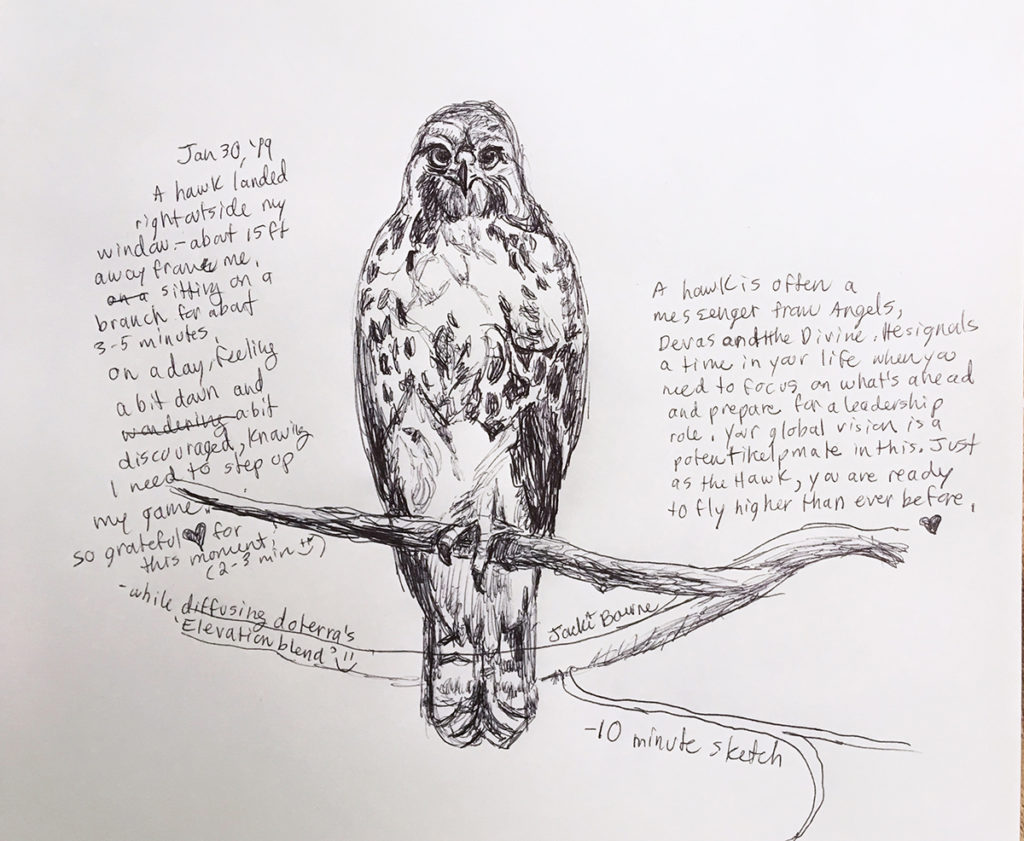 Jan 30, '19
A hawk landed
right outside my
window - about 15 ft
away from me.
on a sitting on a
branch for about
3-5 minutes.
on a day, feeling
a bit down and
wondering a bit
discouraged, knowing
I need to step up
my game.
so grateful ♥ for
this moment!
(2-3 min )
-while diffusing doterra's
'Elevation blend'
A hawk is often a
messenger from Angels,
Devas and the Divine. He signals
a time in your life when you
need to focus on what's ahead
and prepare for a leadership
role. Your global vision is a
potent helpmate in this. Just
as the Hawk, you are ready
to fly higher than ever before.
♥
Jacki Bourne
-10 minute sketch